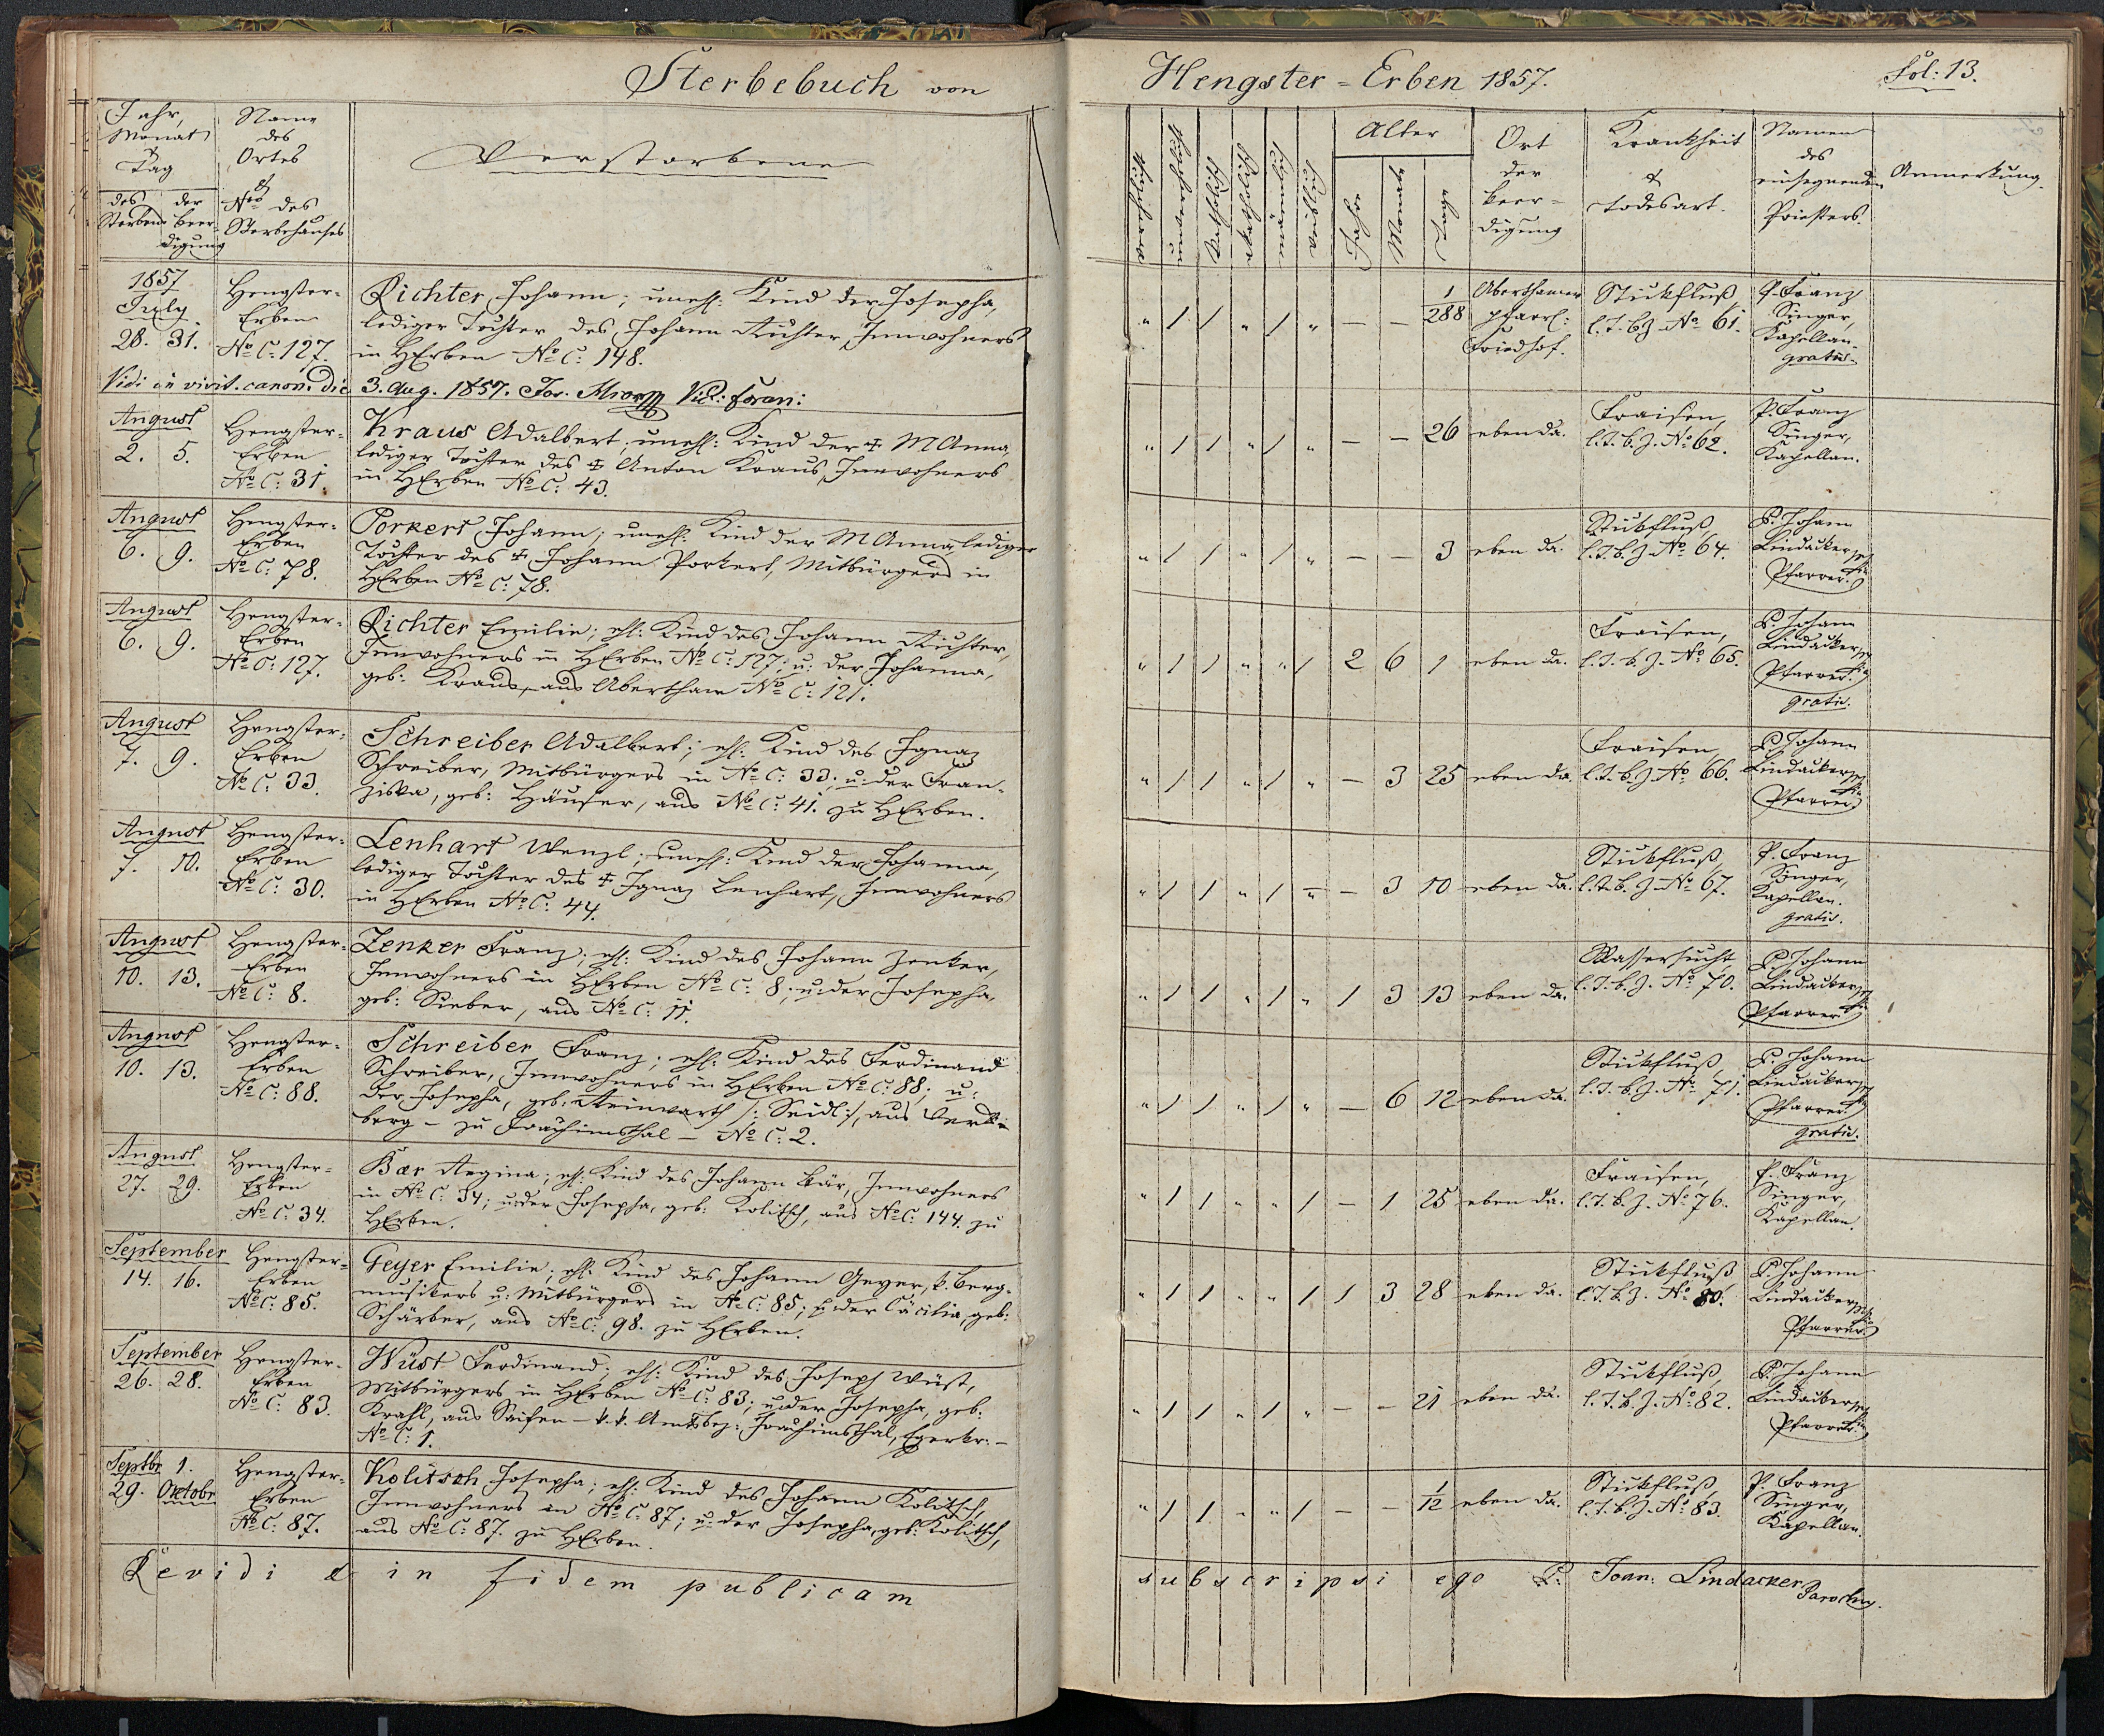 Sterbebuch von Hengster-Erben 1857. Fol: 13.
Jahr, Monat & Tag
des Sterbens
der Beerdigung
Name des Ortes & Nro des Sterbehauses
Verstorbene
verehelicht
unverehelicht
männlich
weiblich
Alter
Jahre
Monate
Tage
Ort der Beer=digung
Krankheit & Todesart.
Namen des einsegnenden Priesters.
Anmerkung.
1857
July
28. 31.
Hengster-
Erben
No C: 127.
Richter Johann; unehl: Kind der Josepha,
lediger Tochter des Johann Richter, Innwohners
in HErben No C: 148.
" / / " / " — — 1/288
Aberthamer
pfarrl:
Friedhof.
Stickfluß,
l. T. b. Z. No 61.
P. Franz
Singer,
Kapellan.
gratis.
Vidi in visit. canon. die 3. Aug. 1857. Jos. Vic: foran:
August
2. 5.
Hengster-
Erben
No C: 31.
Kraus Adalbert; unehl: Kind der ‡ MAnna,
lediger Tochter des ‡ Anton Kraus, Innwohners
in HErben No C: 43.
" / / " / " — — 26 ebenda.
Fraisen,
l. T. b. Z. No 62.
P. Franz
Singer,
Kapellan.
August
6. 9.
Hengster-
Erben
No C: 78.
Porkert Johann; unehl: Kind der MAnna, lediger
Tochter des ‡ Johann Porkert, Mitbürgers in
HErben No C: 78.
" / / " / " — — 3 eben da.
Stickfluß,
l. T. b. Z. No 64.
P. Johann
Lindacker,
Pfarrer.
August
6. 9.
Hengster-
Erben
No C: 127.
Richter Emilie; ehl: Kind des Johann Richter,
Innwohners in HErben No C: 127; u: der Johanna,
geb: Kraus, aus Abertham No C: 121.
" / / " " / 2 6 1 eben da.
Fraisen,
l. T. b. Z. No 65.
P. Johann
Lindacker,
Pfarrer.
gratis.
August
7. 9.
Hengster-
Erben
No C: 33.
Schreiber Adalbert; ehl: Kind des Ignaz
Schreiber, Mitbürgers in No C: 33; u: der Fran-
ziska, geb: Häuser, aus No C: 41. zu HErben.
" / / " / " — 3 25 eben da.
Fraisen,
l. T. b. Z. No 66.
P. Johann
Lindacker,
Pfarrer
August
7. 10.
Hengster-
Erben
No C: 30.
Lenhart Wenzl; unehl: Kind der Johanna,
lediger Tochter des ‡ Ignaz Lenhart, Innwohners
in HErben No C: 44.
" / / " / " — 3 10 eben da.
Stickfluß,
l. T. b. Z. No 67.
P. Franz
Singer,
Kapellan.
gratis.
August
10. 13.
Hengster-
Erben
No C: 8.
Zenker Franz; ehl: Kind des Johann Zenker,
Innwohners in HErben No C: 8; u: der Josepha,
geb: Sieber, aus No C: 11.
" / / " / " 1 3 13 eben da.
Wassersucht
l. T. b. Z. No 70.
P. Johann
Lindacker,
Pfarrer
August
10. 13.
Hengster-
Erben
No C: 88.
Schreiber Franz; ehl: Kind des Ferdinand
Schreiber, Innwohners in HErben No C: 88; u:
der Josepha, geb: Reinwarth /: Seidl :/, aus
berg — zu Joachimsthal — No C: 2.
" / / " / " — 6 12 eben da.
Stickfluß,
l. T. b. Z. No 71.
P. Johann
Lindacker,
Pfarrer.
gratis.
August
27. 29.
Hengster-
Erben
No C: 34.
Bær Regina; ehl: Kind des Johann Bär, Innwohners
in No C: 34; u: der Josepha, geb: Kolitsch, aus No C: 144. zu
HErben.
" / / " " / — 1 25 eben da.
Fraisen,
l. T. b. Z. No 76.
P. Franz
Singer,
Kapellan.
September
14. 16.
Hengster-
Erben
No C: 85.
Geyer Emilie; ehl: Kind des Johann Geyer, k. Berg-
musikers u: Mitbürgers in No C: 85; u: der Cäcilia, geb:
Schärber, aus No C: 98. zu HErben.
" / / " " / 1 3 28 eben da.
Stickfluß
l. T. b. Z. No 80.
P. Johann
Lindacker,
Pfarrer
September
26. 28.
Hengster-
Erben
No C: 83.
Wüst Ferdinand; ehl: Kind des Joseph Wüst,
Mitbürgers in HErben No C: 83; u: der Josepha, geb:
Krahl, aus Saifen — k. k. Amtsbez: Joachimsthal, Egerkr: —
No C: 1.
" / / " / " — — 21 eben da.
Stickfluß,
l. T. b. Z. No 82.
P. Johann
Lindacker,
Pfarrer
Septbr 1.
29. Oktobr
Hengster-
Erben
No C: 87.
Kolitsch Josepha; ehl: Kind des Johann Kolitsch,
Innwohners in No C: 87; u: der Josepha, geb: Kolitsch,
aus No C: 87. zu HErben.
" / / " " / — — 1/12 eben da.
Stickfluß,
l. T. b. Z. No 83.
P. Franz
Singer,
Kapellan.
Revidi & in fidem publicam subscripsi ego P: Joan: Lindacker
Parochus.